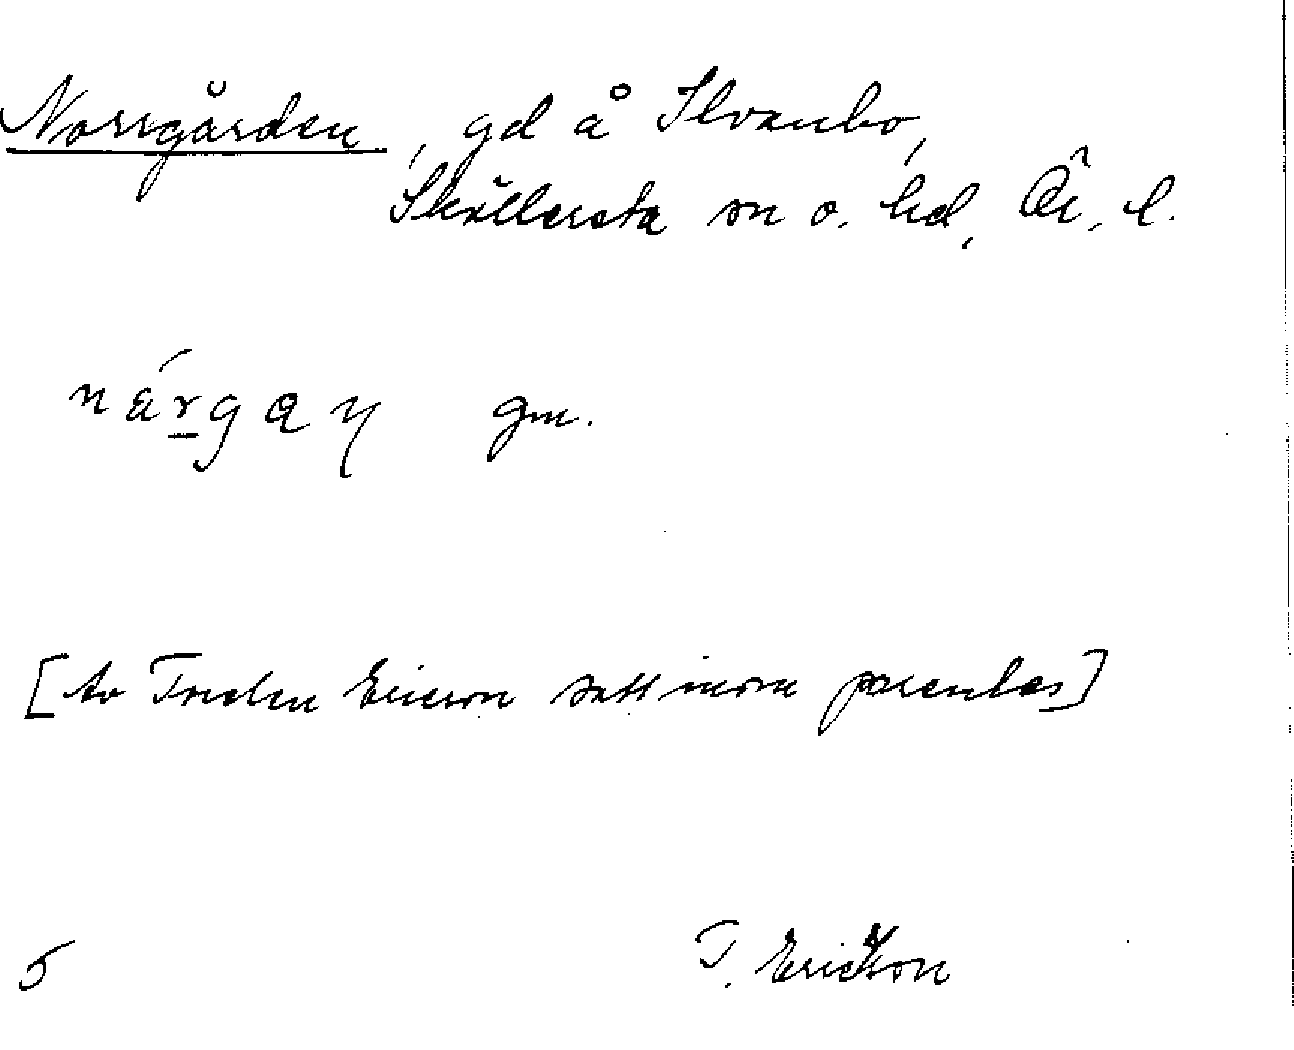 Norrgården, gd å Ilvanbo,
Sköllersta sn o. hd, Ör. l.
nárgaŋ gm.
[av Torsten Ericson satt inom parentes]
5 T. Ericsson